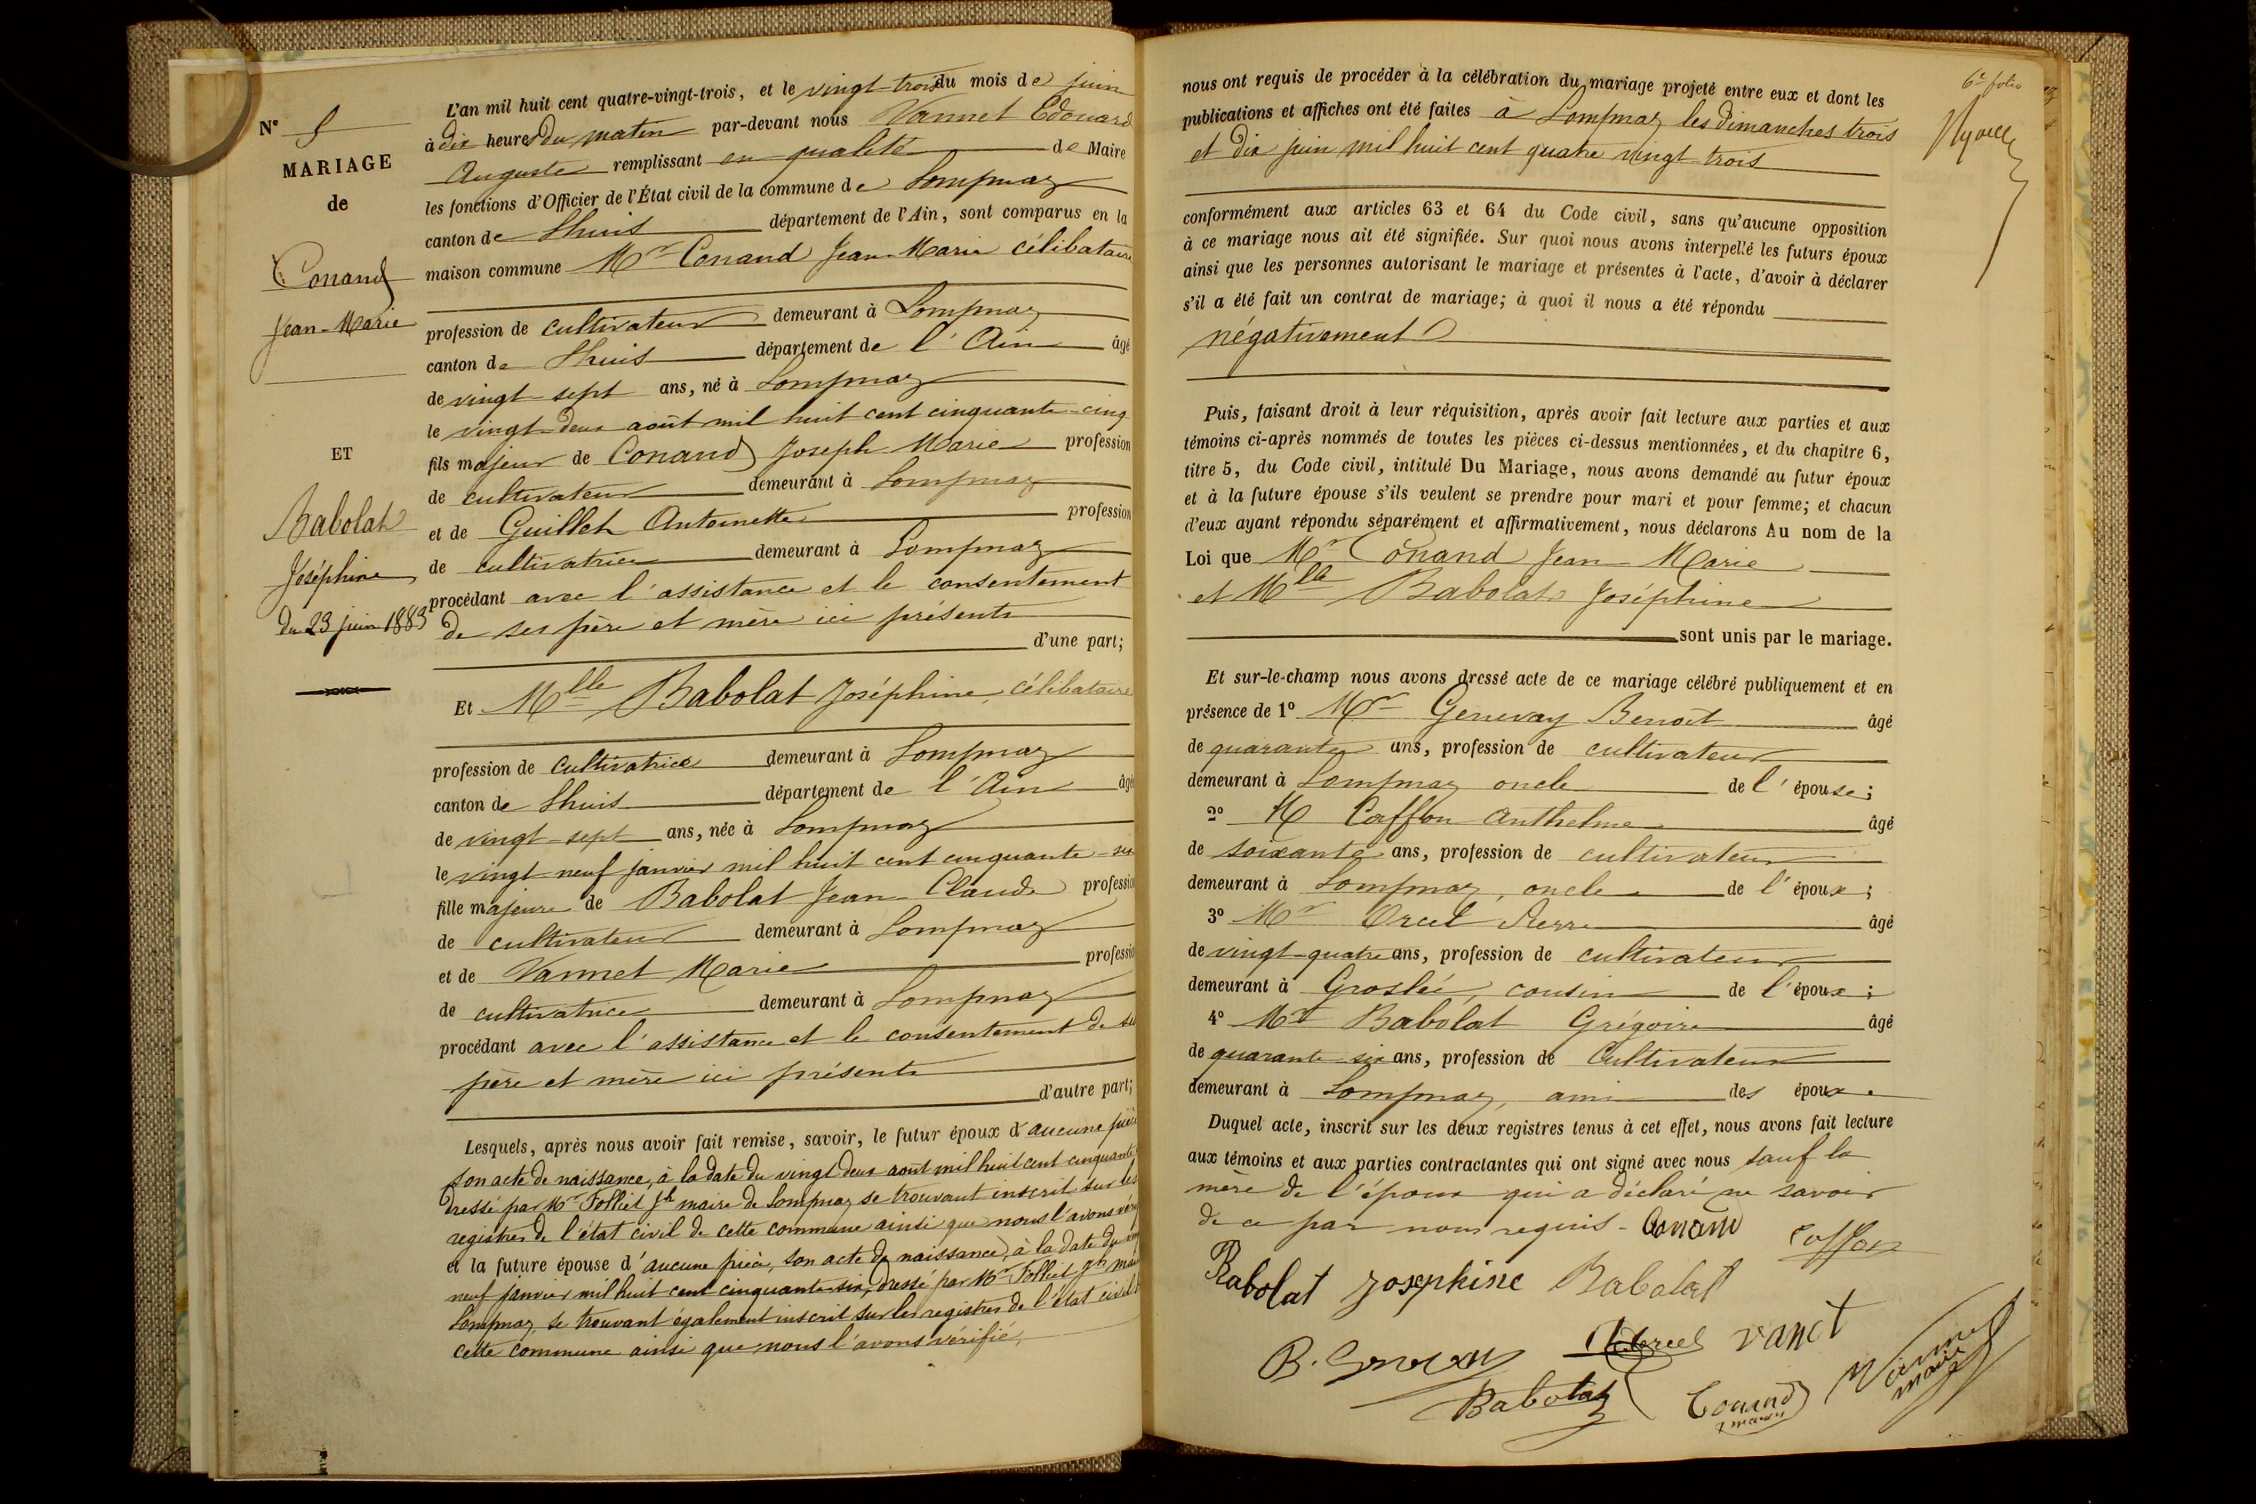 N° 5
MARIAGE
de
Conand
Jean-Marie
ET
Babolat
Joséphine
Du 23 juin 1883
L'an mil huit cent quatre-vingt-trois, et le vingt-trois du mois de juin
à dix heures du matin par-devant nous Vannet Edouard
Auguste remplissant en qualité de Maire
les fonctions d'Officier de l'État civil de la commune de Lompnaz
canton de Lhuis département de l'Ain, sont comparus en la
maison commune Mr Conand Jean-Marie célibataire
profession de cultivateur demeurant à Lompnaz
canton de Lhuis département de l'Ain âgé
de vingt-sept ans, né à Lompnaz
le vingt-deux août mil huit cent cinquante-cinq
fils majeur de Conand Joseph Marie profession
de cultivateur demeurant à Lompnaz
et de Guillot Antoinette profession
de cultivatrice demeurant à Lompnaz
procédant avec l'assistance et le consentement
de ses père et mère ici présents
d'une part;
Et Mlle Babolat Joséphine, célibataire
profession de cultivatrice demeurant à Lompnaz
canton de Lhuis département de l'Ain âgé
de vingt-sept ans, née à Lompnaz
le vingt-neuf janvier mil huit cent cinquante-six
fille majeure de Babolat Jean-Claude profession
de cultivateur demeurant à Lompnaz
et de Vannet Marie profession
de cultivatrice demeurant à Lompnaz
procédant avec l'assistance et le consentement de ses
père et mère ici présents
d'autre part;
Lesquels, après nous avoir fait remise, savoir, le futur époux d'aucune pièce
son acte de naissance, à la date du vingt deux août mil huit cent cinquante
dressé par Mr Folliet Jh maire de Lompnaz se trouvant inscrit sur les
registres de l'état civil de cette commune ainsi que nous l'avons
et la future épouse d'aucune pièce, son acte de naissance, à la date du
neuf janvier mil huit cent cinquante six, dressé par Mr Folliet Jh
Lompnaz, se trouvant également inscrit sur les registres de l'état civil
cette commune ainsi que nous l'avons vérifié,
6e folio
nous ont requis de procéder à la célébration du mariage projeté entre eux et dont les
publications et affiches ont été faites à Lompnaz les dimanches trois
et dix juin mil huit cent quatre vingt-trois
conformément aux articles 63 et 64 du Code civil, sans qu'aucune opposition
à ce mariage nous ait été signifiée. Sur quoi nous avons interpellé les futurs époux
ainsi que les personnes autorisant le mariage et présentes à l'acte, d'avoir à déclarer
s'il a été fait un contrat de mariage; à quoi il nous a été répondu
négativement
Puis, faisant droit à leur réquisition, après avoir fait lecture aux parties et aux
témoins ci-après nommés de toutes les pièces ci-dessus mentionnées, et du chapitre 6,
titre 5, du Code civil, intitulé Du Mariage, nous avons demandé au futur époux
et à la future épouse s'ils veulent se prendre pour mari et pour femme; et chacun
d'eux ayant répondu séparément et affirmativement, nous déclarons Au nom de la
Loi que Mr Conand Jean-Marie
et Mlle Babolat Joséphine
sont unis par le mariage.
Et sur-le-champ nous avons dressé acte de ce mariage célébré publiquement et en
présence de 1° Mr Genevay Benoît âgé
de quarante ans, profession de cultivateur
demeurant à Lompnaz oncle de l'épouse;
2° M Caffon Anthelme âgé
de soixante ans, profession de cultivateur
demeurant à Lompnaz, oncle de l'époux;
3° Mr Orcel Pierre âgé
de vingt-quatre ans, profession de cultivateur
demeurant à Groslée, cousin de l'époux;
4° Mr Babolat Grégoire âgé
de quarante-six ans, profession de Cultivateur
demeurant à Lompnaz, ami des époux.
Duquel acte, inscrit sur les deux registres tenus à cet effet, nous avons fait lecture
aux témoins et aux parties contractantes qui ont signé avec nous sauf la
mère de l'époux qui a déclaré ne savoir
de ce par nous requis - Conand Caffon
Babolat Josephine Babolat
B. Genevay Orcel vanet
Babolat Conand Vannet
maire